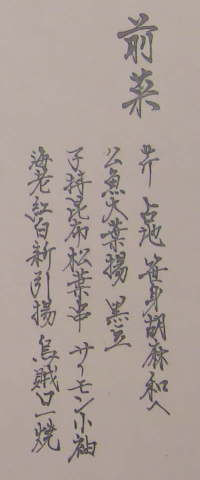 前菜
芹 占地 笹身胡麻和へ
公魚大葉揚 黒豆
子持昆布松葉串 サーモン小袖
海老紅白新引揚 烏賊口一焼